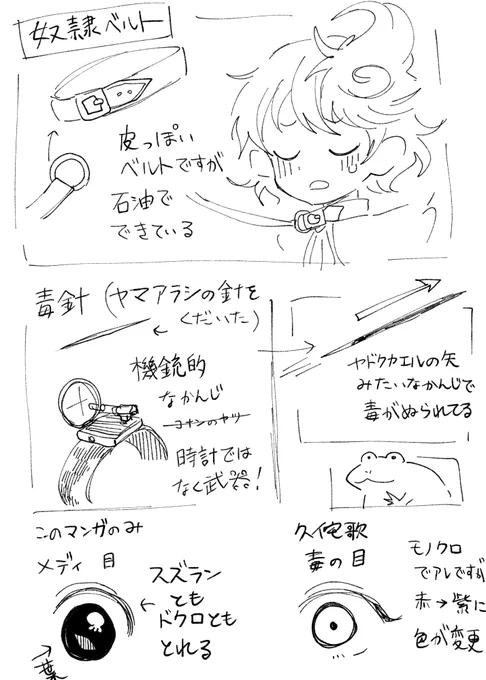 奴隷ベルト
皮っぽい
ベルトですが
石油で
できている
毒針 (ヤマアラシの針を
くだいた)
機銃的
なかんじ
コナンのヤツ
時計では
なく武器!
ヤドクカエルの矢
みたいなかんじで
毒がぬられてる
このマンガのみ
メディ 目
スズラン
とも
ドクロとも
とれる
葉
久侘歌
毒の目
モノクロ
でアレですが
赤→紫に
色が変更